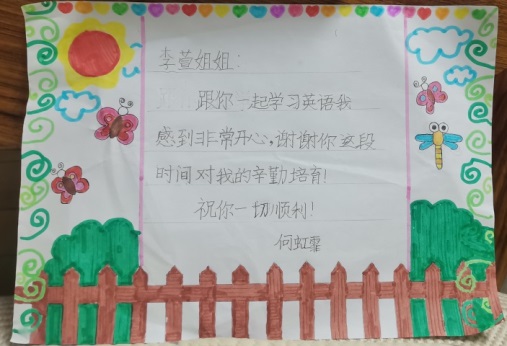 李萱姐姐:
跟你一起学习英语我
感到非常开心,谢谢你这段
时间对我的辛勤培育!
祝你一切顺利!
何虹霏